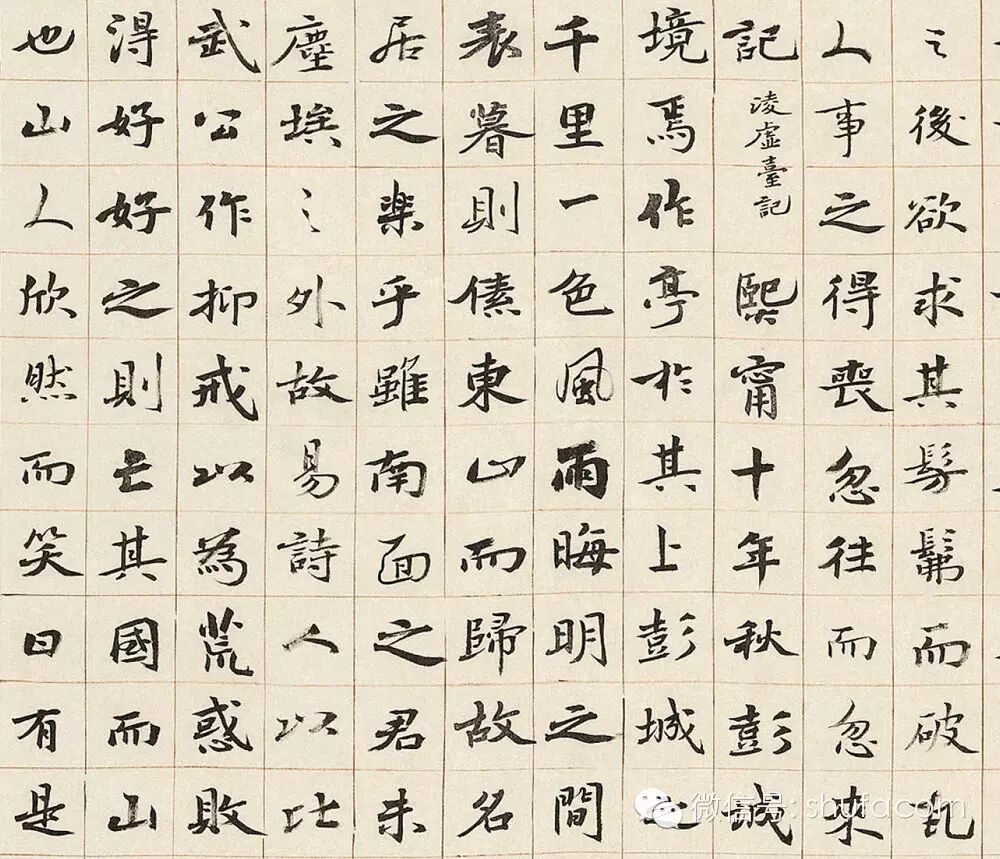 之後欲求其髣髴而破瓦
人事之得喪忽往而忽来
記淩虛臺記熙甯十年秋彭城
境焉作亭於其上彭城之
千里一色風雨晦明之間
表暮則傃東山而歸故名
居之楽乎雖南面之君未
塵埃之外故易詩人以比
武公作抑戒以為荒惑敗
得好好之則亡其國而山
也山人欣然而笑曰有是
微信号: shufacom